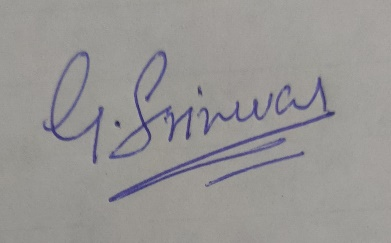 G. Srinivas